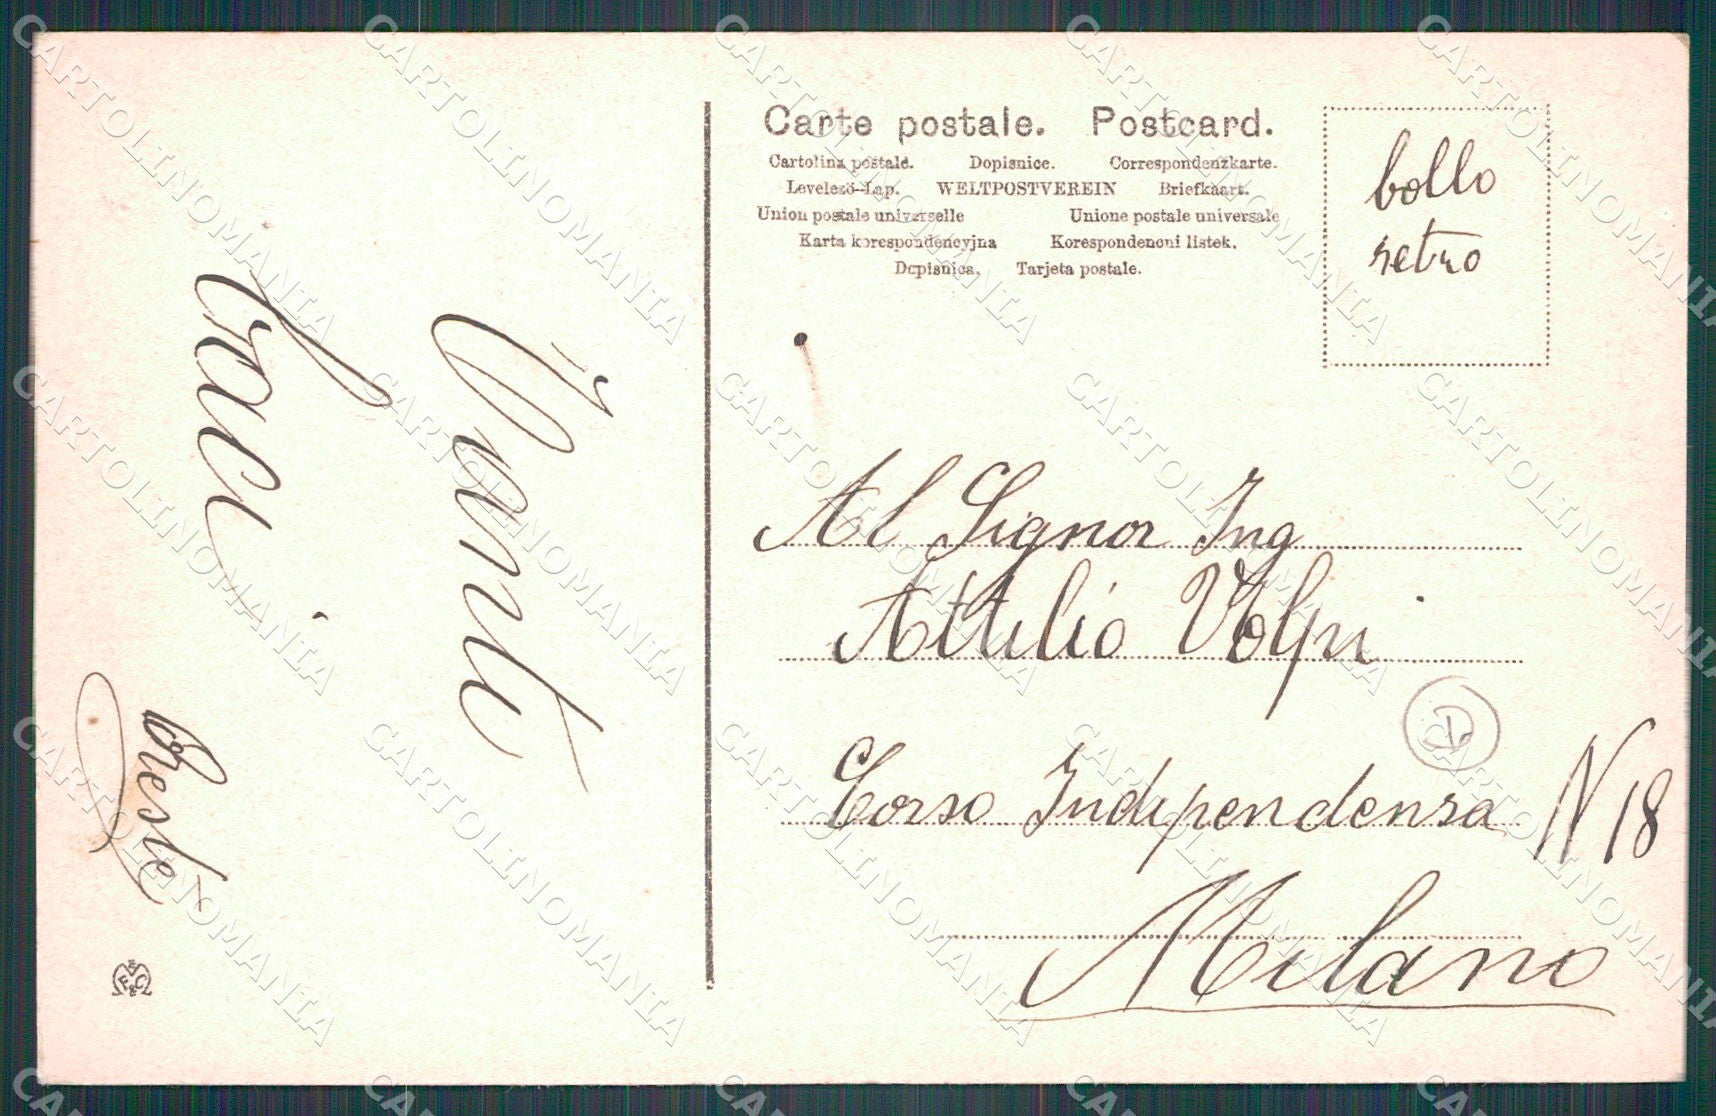 Carte postale. Postcard.
Cartolina postale. Dopisnice. Correspondenzkarte.
Levelező-Lap. WELTPOSTVEREIN Briefkaart.
Union postale universelle Unione postale universale
Karta korespondencyjna Korespondencni listek.
Dopisnica. Tarjeta postale.
bollo
retro
Al Signor Ing
Attilio Volpi
Corso Indipendensa N 18
Milano
Tanti
baci
Oreste
CARTOLINOMANIA